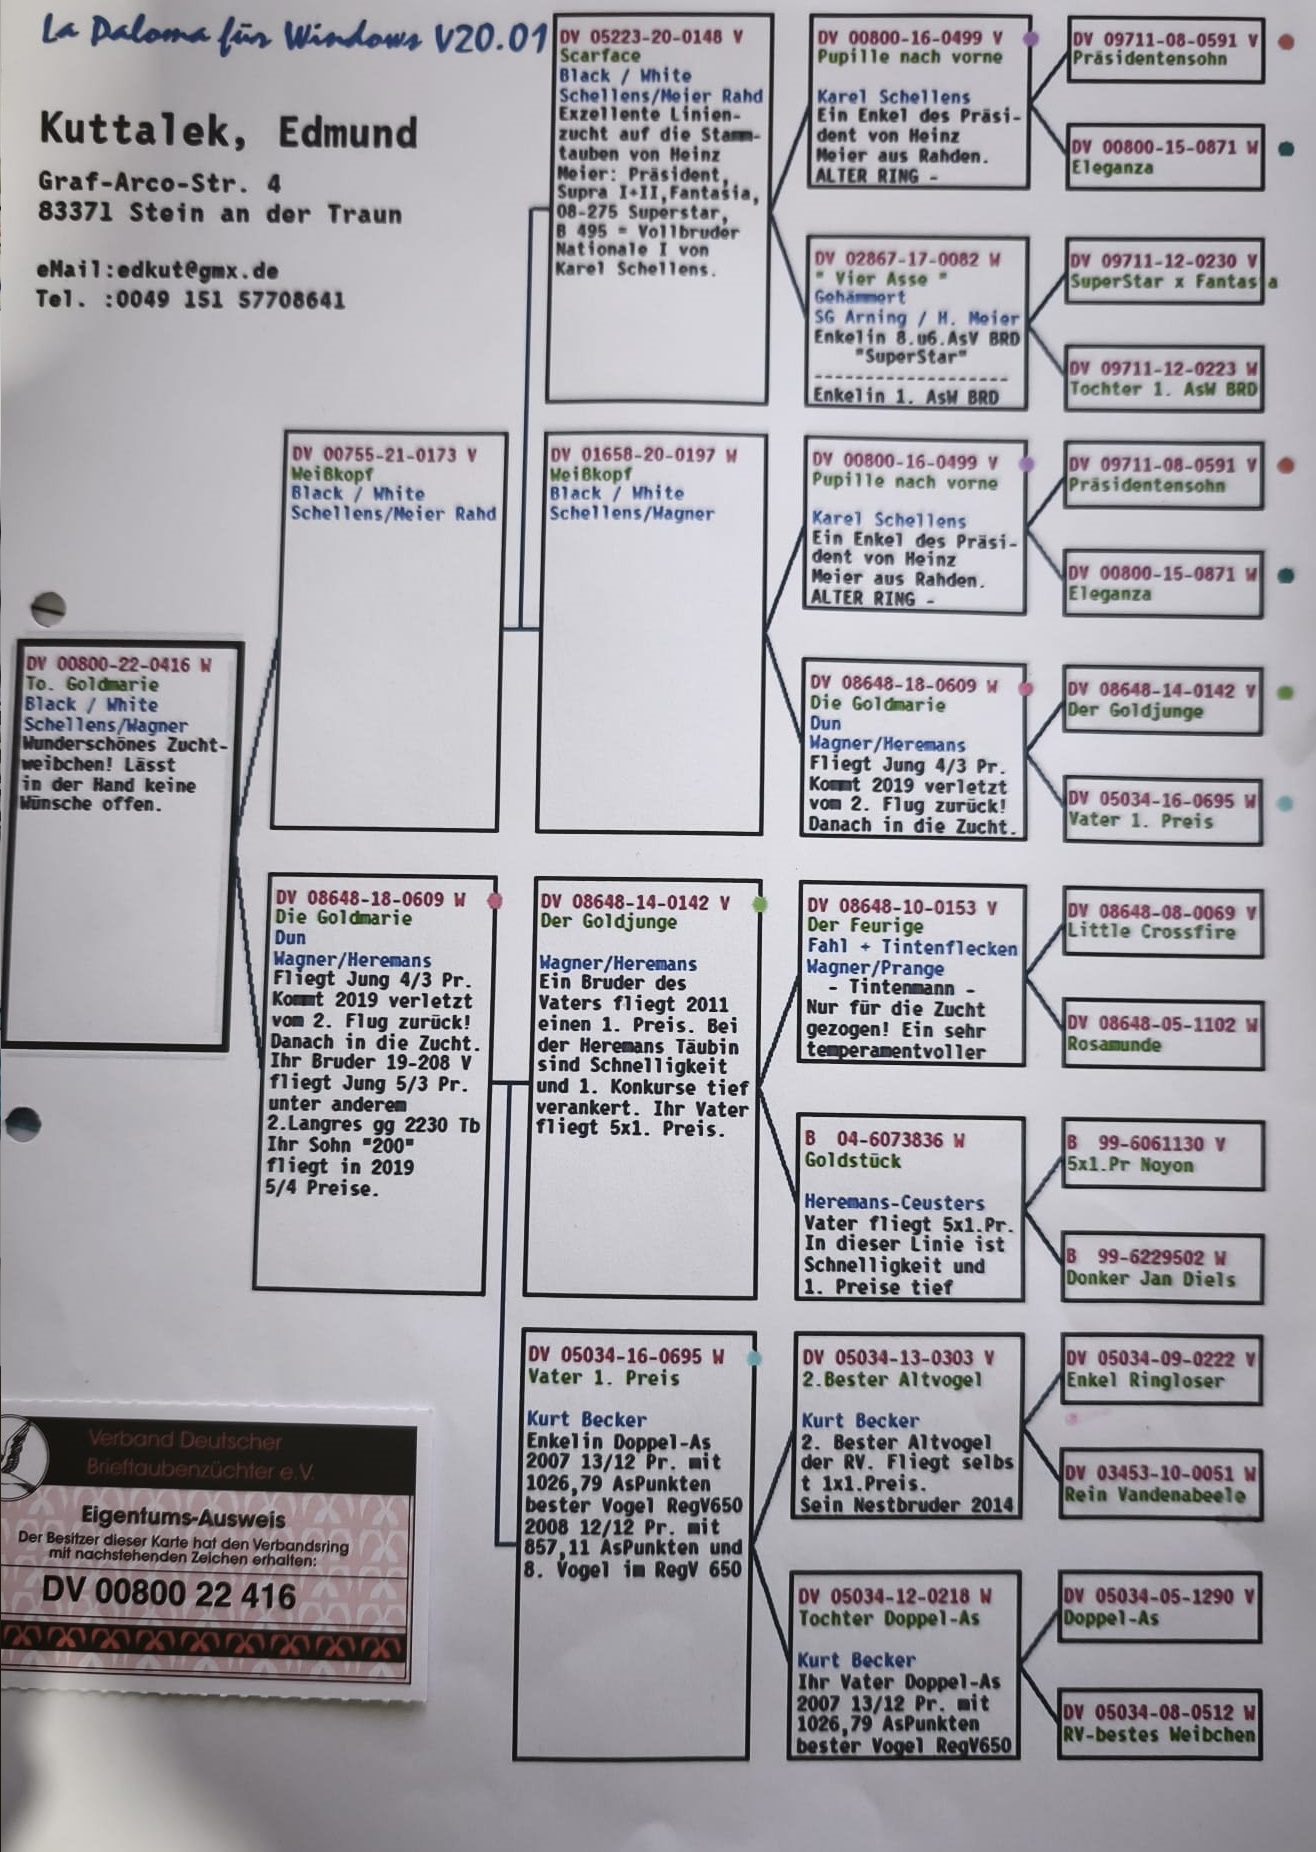 La Paloma für Windows V20.01
Kuttalek, Edmund
Graf-Arco-Str. 4
83371 Stein an der Traun
eMail:edkut@gmx.de
Tel. :0049 151 57708641
DV 00800-22-0416 W
To. Goldmarie
Black / White
Schellens/Wagner
Wunderschönes Zucht-
weibchen! Lässt
in der Hand keine
Wünsche offen.
DV 00755-21-0173 V
Weißkopf
Black / White
Schellens/Meier Rahd
DV 08648-18-0609 W
Die Goldmarie
Dun
Wagner/Heremans
Fliegt Jung 4/3 Pr.
Kommt 2019 verletzt
vom 2. Flug zurück!
Danach in die Zucht.
Ihr Bruder 19-208 V
fliegt Jung 5/3 Pr.
unter anderem
2.Langres gg 2230 Tb
Ihr Sohn "200"
fliegt in 2019
5/4 Preise.
DV 05223-20-0148 V
Scarface
Black / White
Schellens/Meier Rahd
Exzellente Linien-
zucht auf die Stamm-
tauben von Heinz
Meier: Präsident,
Supra I+II,Fantasia,
08-275 Superstar,
B 495 = Vollbruder
Nationale I von
Karel Schellens.
DV 01658-20-0197 W
Weißkopf
Black / White
Schellens/Wagner
DV 08648-14-0142 V
Der Goldjunge
Wagner/Heremans
Ein Bruder des
Vaters fliegt 2011
einen 1. Preis. Bei
der Heremans Täubin
sind Schnelligkeit
und 1. Konkurse tief
verankert. Ihr Vater
fliegt 5x1. Preis.
DV 05034-16-0695 W
Vater 1. Preis
Kurt Becker
Enkelin Doppel-As
2007 13/12 Pr. mit
1026,79 AsPunkten
bester Vogel RegV650
2008 12/12 Pr. mit
857,11 AsPunkten und
8. Vogel im RegV 650
DV 00800-16-0499 V
Pupille nach vorne
Karel Schellens
Ein Enkel des Präsi-
dent von Heinz
Meier aus Rahden.
ALTER RING -
DV 02867-17-0082 W
" Vier Asse "
Gehämmert
SG Arning / H. Meier
Enkelin 8.u6.AsV BRD
"SuperStar"
--------------------
Enkelin 1. AsW BRD
DV 00800-16-0499 V
Pupille nach vorne
Karel Schellens
Ein Enkel des Präsi-
dent von Heinz
Meier aus Rahden.
ALTER RING -
DV 08648-18-0609 W
Die Goldmarie
Dun
Wagner/Heremans
Fliegt Jung 4/3 Pr.
Kommt 2019 verletzt
vom 2. Flug zurück!
Danach in die Zucht.
DV 08648-10-0153 V
Der Feurige
Fahl + Tintenflecken
Wagner/Prange
- Tintenmann -
Nur für die Zucht
gezogen! Ein sehr
temperamentvoller
B 04-6073836 W
Goldstück
Heremans-Ceusters
Vater fliegt 5x1.Pr.
In dieser Linie ist
Schnelligkeit und
1. Preise tief
DV 05034-13-0303 V
2.Bester Altvogel
Kurt Becker
2. Bester Altvogel
der RV. Fliegt selbs
t 1x1.Preis.
Sein Nestbruder 2014
DV 05034-12-0218 W
Tochter Doppel-As
Kurt Becker
Ihr Vater Doppel-As
2007 13/12 Pr. mit
1026,79 AsPunkten
bester Vogel RegV650
DV 09711-08-0591 V
Präsidentensohn
DV 00800-15-0871 W
Eleganza
DV 09711-12-0230 V
SuperStar x Fantasia
DV 09711-12-0223 W
Tochter 1. AsW BRD
DV 09711-08-0591 V
Präsidentensohn
DV 00800-15-0871 W
Eleganza
DV 08648-14-0142 V
Der Goldjunge
DV 05034-16-0695 W
Vater 1. Preis
DV 08648-08-0069 V
Little Crossfire
DV 08648-05-1102 W
Rosamunde
B 99-6061130 V
5x1.Pr Noyon
B 99-6229502 W
Donker Jan Diels
DV 05034-09-0222 V
Enkel Ringloser
DV 03453-10-0051 W
Rein Vandenabeele
DV 05034-05-1290 V
Doppel-As
DV 05034-08-0512 W
RV-bestes Weibchen
Verband Deutscher
Brieftaubenzüchter e.V.
Eigentums-Ausweis
Der Besitzer dieser Karte hat den Verbandsring
mit nachstehenden Zeichen erhalten:
DV 00800 22 416